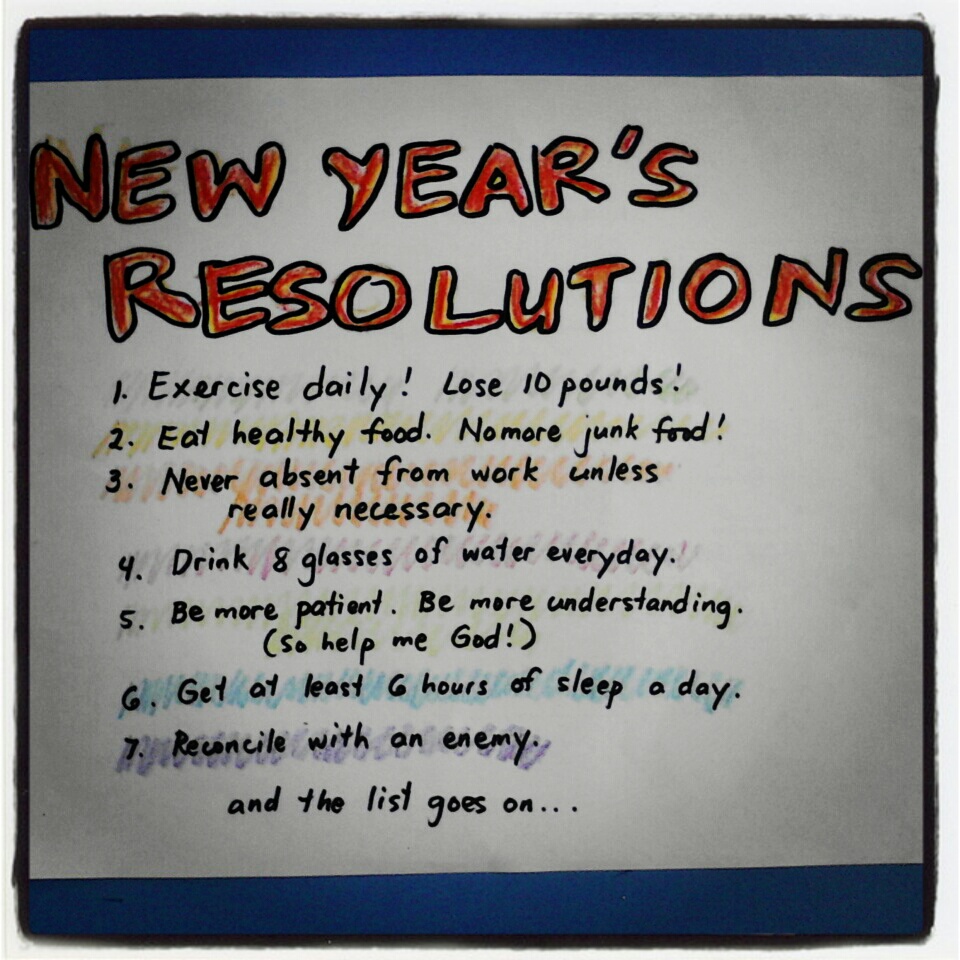 NEW YEAR'S
RESOLUTIONS
1. Exercise daily! Lose 10 pounds!
2. Eat healthy food. No more junk food!
3. Never absent from work unless
really necessary.
4. Drink 8 glasses of water everyday.
5. Be more patient. Be more understanding.
(So help me God!)
6. Get at least 6 hours of sleep a day.
7. Reconcile with an enemy.
and the list goes on...